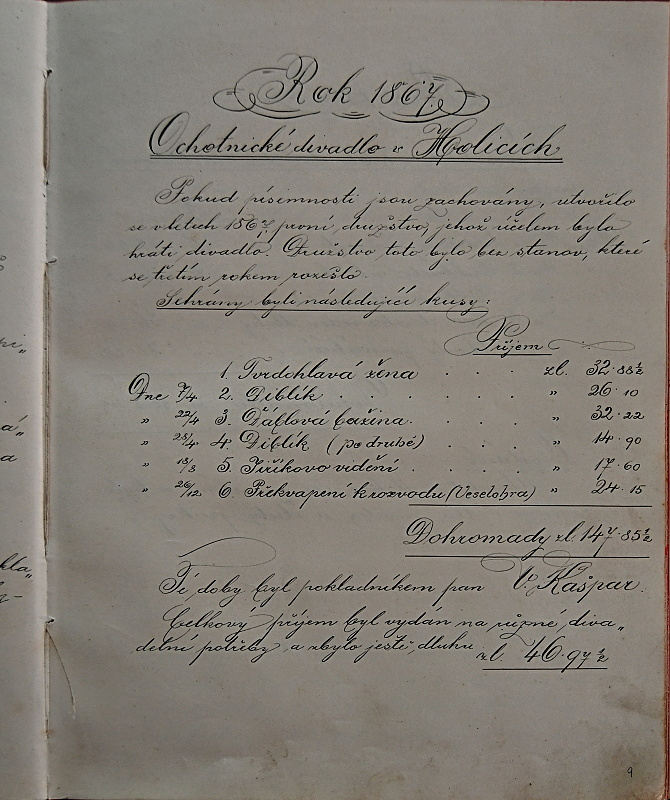 Rok 1867.
Ochotnické divadlo v Holicích
Pokud písemnosti jsou zachovány, utvořilo
se v letech 1867 první družstvo, jehož účelem bylo
hráti divadlo. Družstvo toto bylo bez stanov, které
se třetím rokem rozešlo.
Sehrány byli následující kusy:
Příjem
1. Tvrdohlavá žena . . . zl. 32·88½
Dne 7/4 2. Diblík . . . . . . " 26·10
" 22/4 3. Ďáblová bažina . . . " 32·22
" 28/4 4. Diblík (po druhé) . . . " 14·90
" 18/8 5. Jiříkovo vidění . . . . " 17·60
" 26/12 6. Překvapení k rozvodu (Veselohra) " 24·15
Dohromady zl. 147·85½
Té doby byl pokladníkem pan V. Kašpar.
Celkový příjem byl vydán na různé, diva„
delní potřeby a zbylo ještě dluhu zl. 46·97½
9